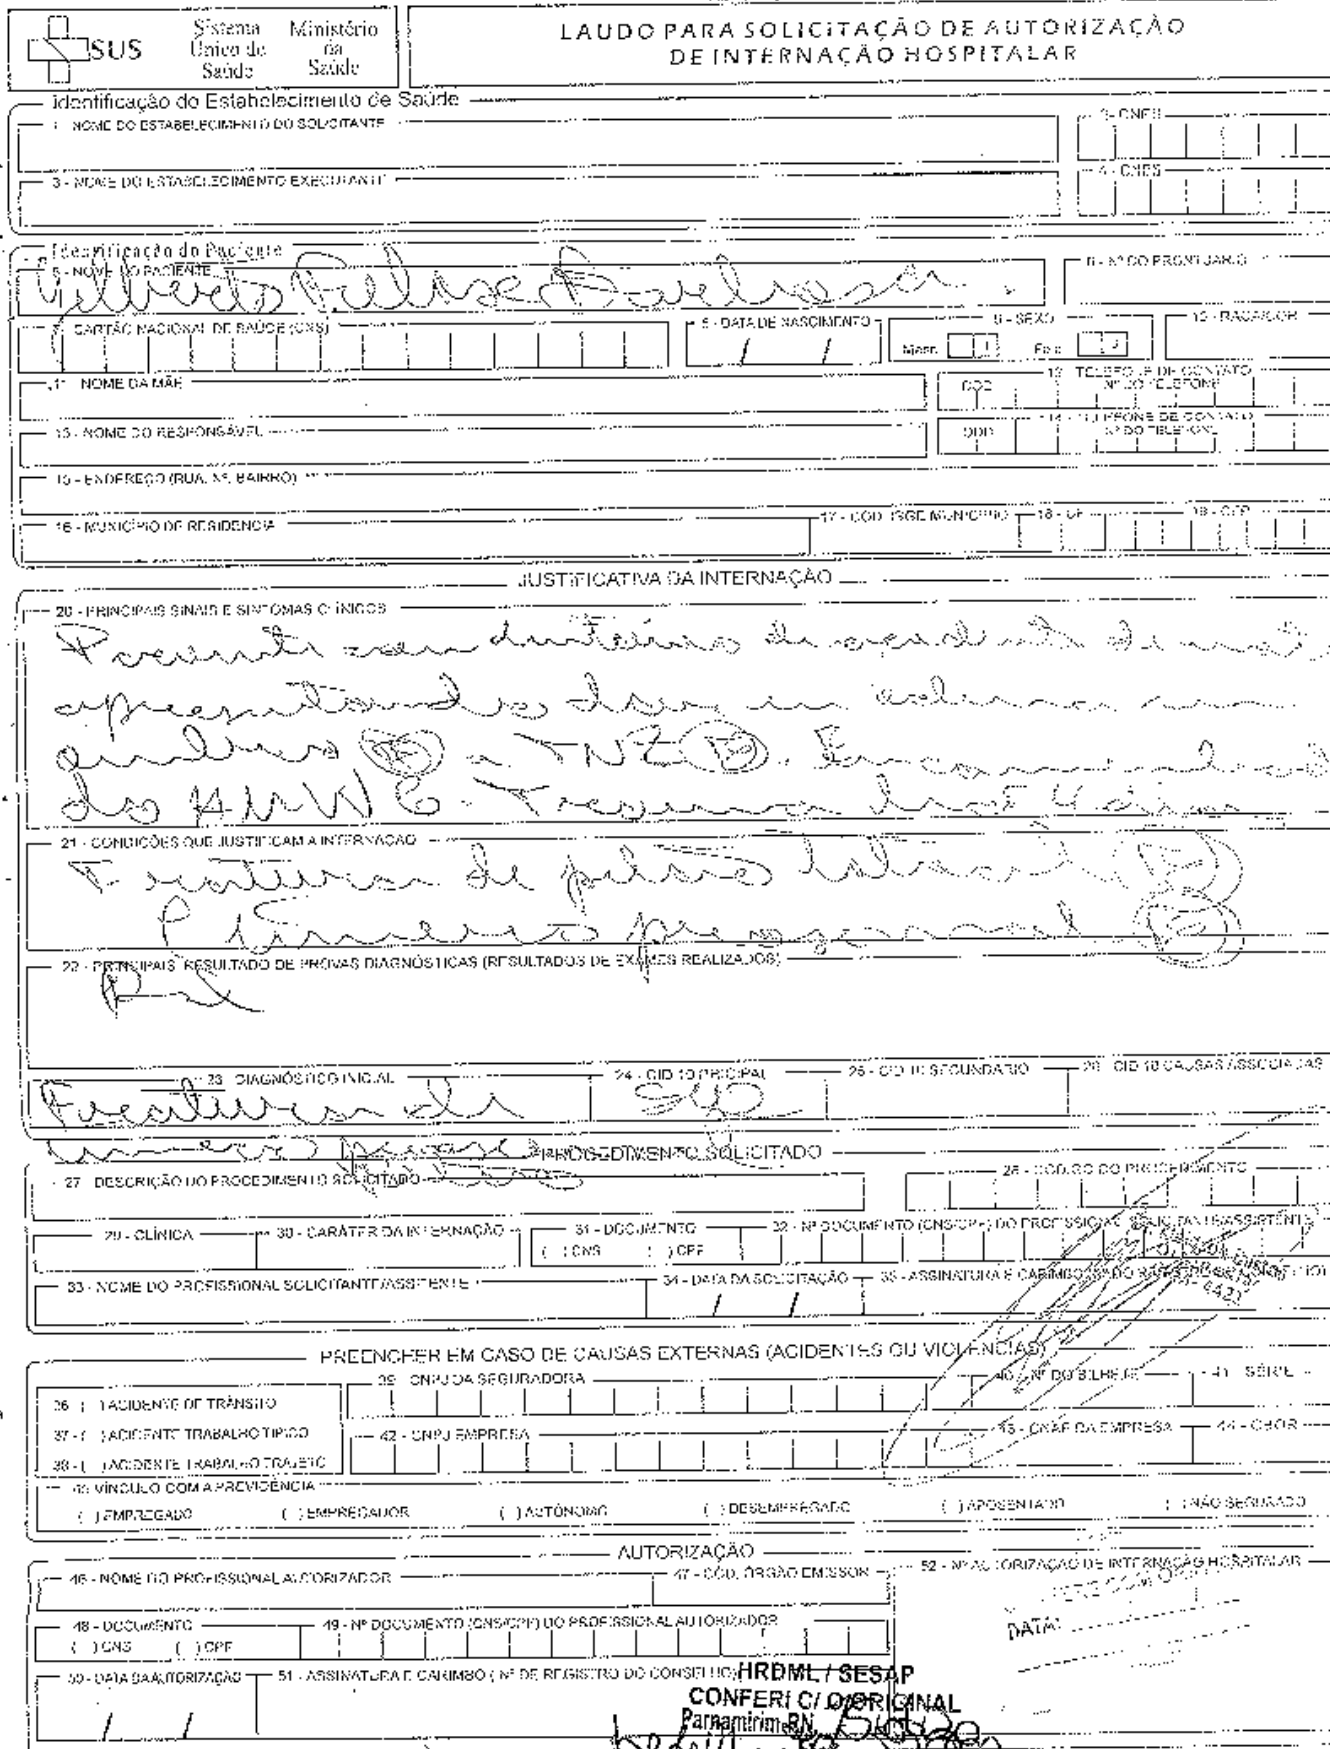 SUS
Sistema Único de Saúde
Ministério da Saúde
LAUDO PARA SOLICITAÇÃO DE AUTORIZAÇÃO
DE INTERNAÇÃO HOSPITALAR
Identificação do Estabelecimento de Saúde
1 - NOME DO ESTABELECIMENTO DO SOLICITANTE
2 - CNES
3 - NOME DO ESTABELECIMENTO EXECUTANTE
4 - CNES
Identificação do Paciente
5 - NOME DO PACIENTE
6 - Nº DO PRONTUARIO
Gilberto Felipe Barbosa
7 - CARTÃO NACIONAL DE SAÚDE (CNS)
8 - DATA DE NASCIMENTO
9 - SEXO
10 - RAÇA/COR
Masc. 1
Fem. 3
11 - NOME DA MÃE
12 - TELEFONE DE CONTATO
DDD
Nº DO TELEFONE
13 - NOME DO RESPONSÁVEL
14 - TELEFONE DE CONTATO
DDD
Nº DO TELEFONE
15 - ENDEREÇO (RUA, Nº, BAIRRO)
16 - MUNICÍPIO DE RESIDENCIA
17 - CÓD. IBGE MUNICÍPIO
18 - UF
19 - CEP
JUSTIFICATIVA DA INTERNAÇÃO
20 - PRINCIPAIS SINAIS E SINTOMAS CLÍNICOS
Paciente com história de acidente de moto
apresentando dor em
ombro (D) e TNZ (D). Encaminhado
do Trauma há 4 dias
21 - CONDIÇÕES QUE JUSTIFICAM A INTERNAÇÃO
Fratura de pilão tibial (D)
e úmero proximal (D)
22 - PRINCIPAIS RESULTADO DE PROVAS DIAGNÓSTICAS (RESULTADOS DE EXAMES REALIZADOS)
Rx
23 - DIAGNÓSTICO INICIAL
24 - CID 10 PRICIPAL
25 - CID 10 SECUNDÁRIO
26 - CID 10 CAUSAS ASSOCIADAS
Fratura de
S42
úmero proximal
PROCEDIMENTO SOLICITADO
27 - DESCRIÇÃO DO PROCEDIMENTO SOLICITADO
28 - CÓDIGO DO PROCEDIMENTO
29 - CLÍNICA
30 - CARÁTER DA INTERNAÇÃO
31 - DOCUMENTO
( ) CNS ( ) CPF
32 - Nº DOCUMENTO (CNS/CPF) DO PROFISSIONAL SOLICITANTE/ASSISTENTE
33 - NOME DO PROFISSIONAL SOLICITANTE/ASSISTENTE
34 - DATA DA SOLICITAÇÃO
35 - ASSINATURA E CARIMBO (Nº DO REGISTRO DO CONSELHO)
PREENCHER EM CASO DE CAUSAS EXTERNAS (ACIDENTES OU VIOLÊNCIAS)
36 - ( ) ACIDENTE DE TRÂNSITO
39 - CNPJ DA SEGURADORA
40 - Nº DO BILHETE
41 - SÉRIE
37 - ( ) ACIDENTE TRABALHO TIPICO
42 - CNPJ EMPRESA
43 - CNAE DA EMPRESA
44 - CBOR
38 - ( ) ACIDENTE TRABALHO TRAJETO
45 VÍNCULO COM A PREVIDÊNCIA
( ) EMPREGADO ( ) EMPREGADOR ( ) AUTÔNOMO ( ) DESEMPREGADO ( ) APOSENTADO ( ) NÃO SEGURADO
AUTORIZAÇÃO
46 - NOME DO PROFISSIONAL AUTORIZADOR
47 - CÓD. ÓRGÃO EMISSOR
52 - Nº AUTORIZAÇÃO DE INTERNAÇÃO HOSPITALAR
48 - DOCUMENTO
( ) CNS ( ) CPF
49 - Nº DOCUMENTO (CNS/CPF) DO PROFISSIONAL AUTORIZADOR
DATA:
50 - DATA DA AUTORIZAÇÃO
51 - ASSINATURA E CARIMBO ( Nº DE REGISTRO DO CONSELHO)
HRDML / SESAP
CONFERI C/ O ORIGINAL
Parnamirim-RN,